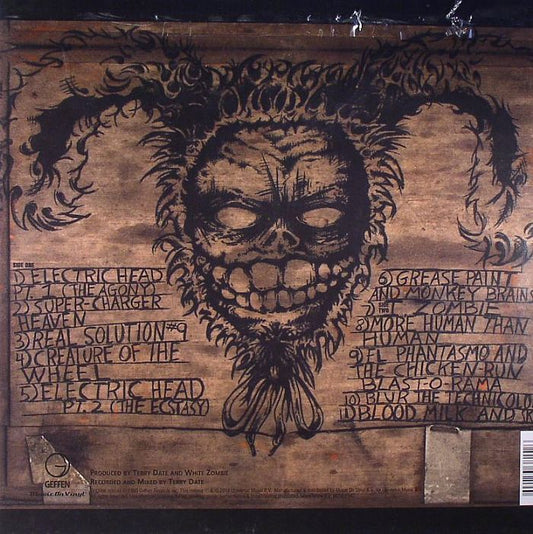 SIDE ONE
1) ELECTRIC HEAD
PT. 1 (THE AGONY)
2) SUPER-CHARGER
HEAVEN
3) REAL SOLUTION #9
4) CREATURE OF THE
WHEEL
5) ELECTRIC HEAD
PT. 2 (THE ECSTASY)
6) GREASE PAINT
AND MONKEY BRAINS
SIDE TWO
7) I, ZOMBIE
8) MORE HUMAN THAN
HUMAN
9) EL PHANTASMO AND
THE CHICKEN-RUN
BLAST-O-RAMA
10) BLUR THE TECHNICOLO
11) BLOOD, MILK AND
G
GEFFEN
Music On Vinyl
PRODUCED BY TERRY DATE AND WHITE ZOMBIE
RECORDED AND MIXED BY TERRY DATE